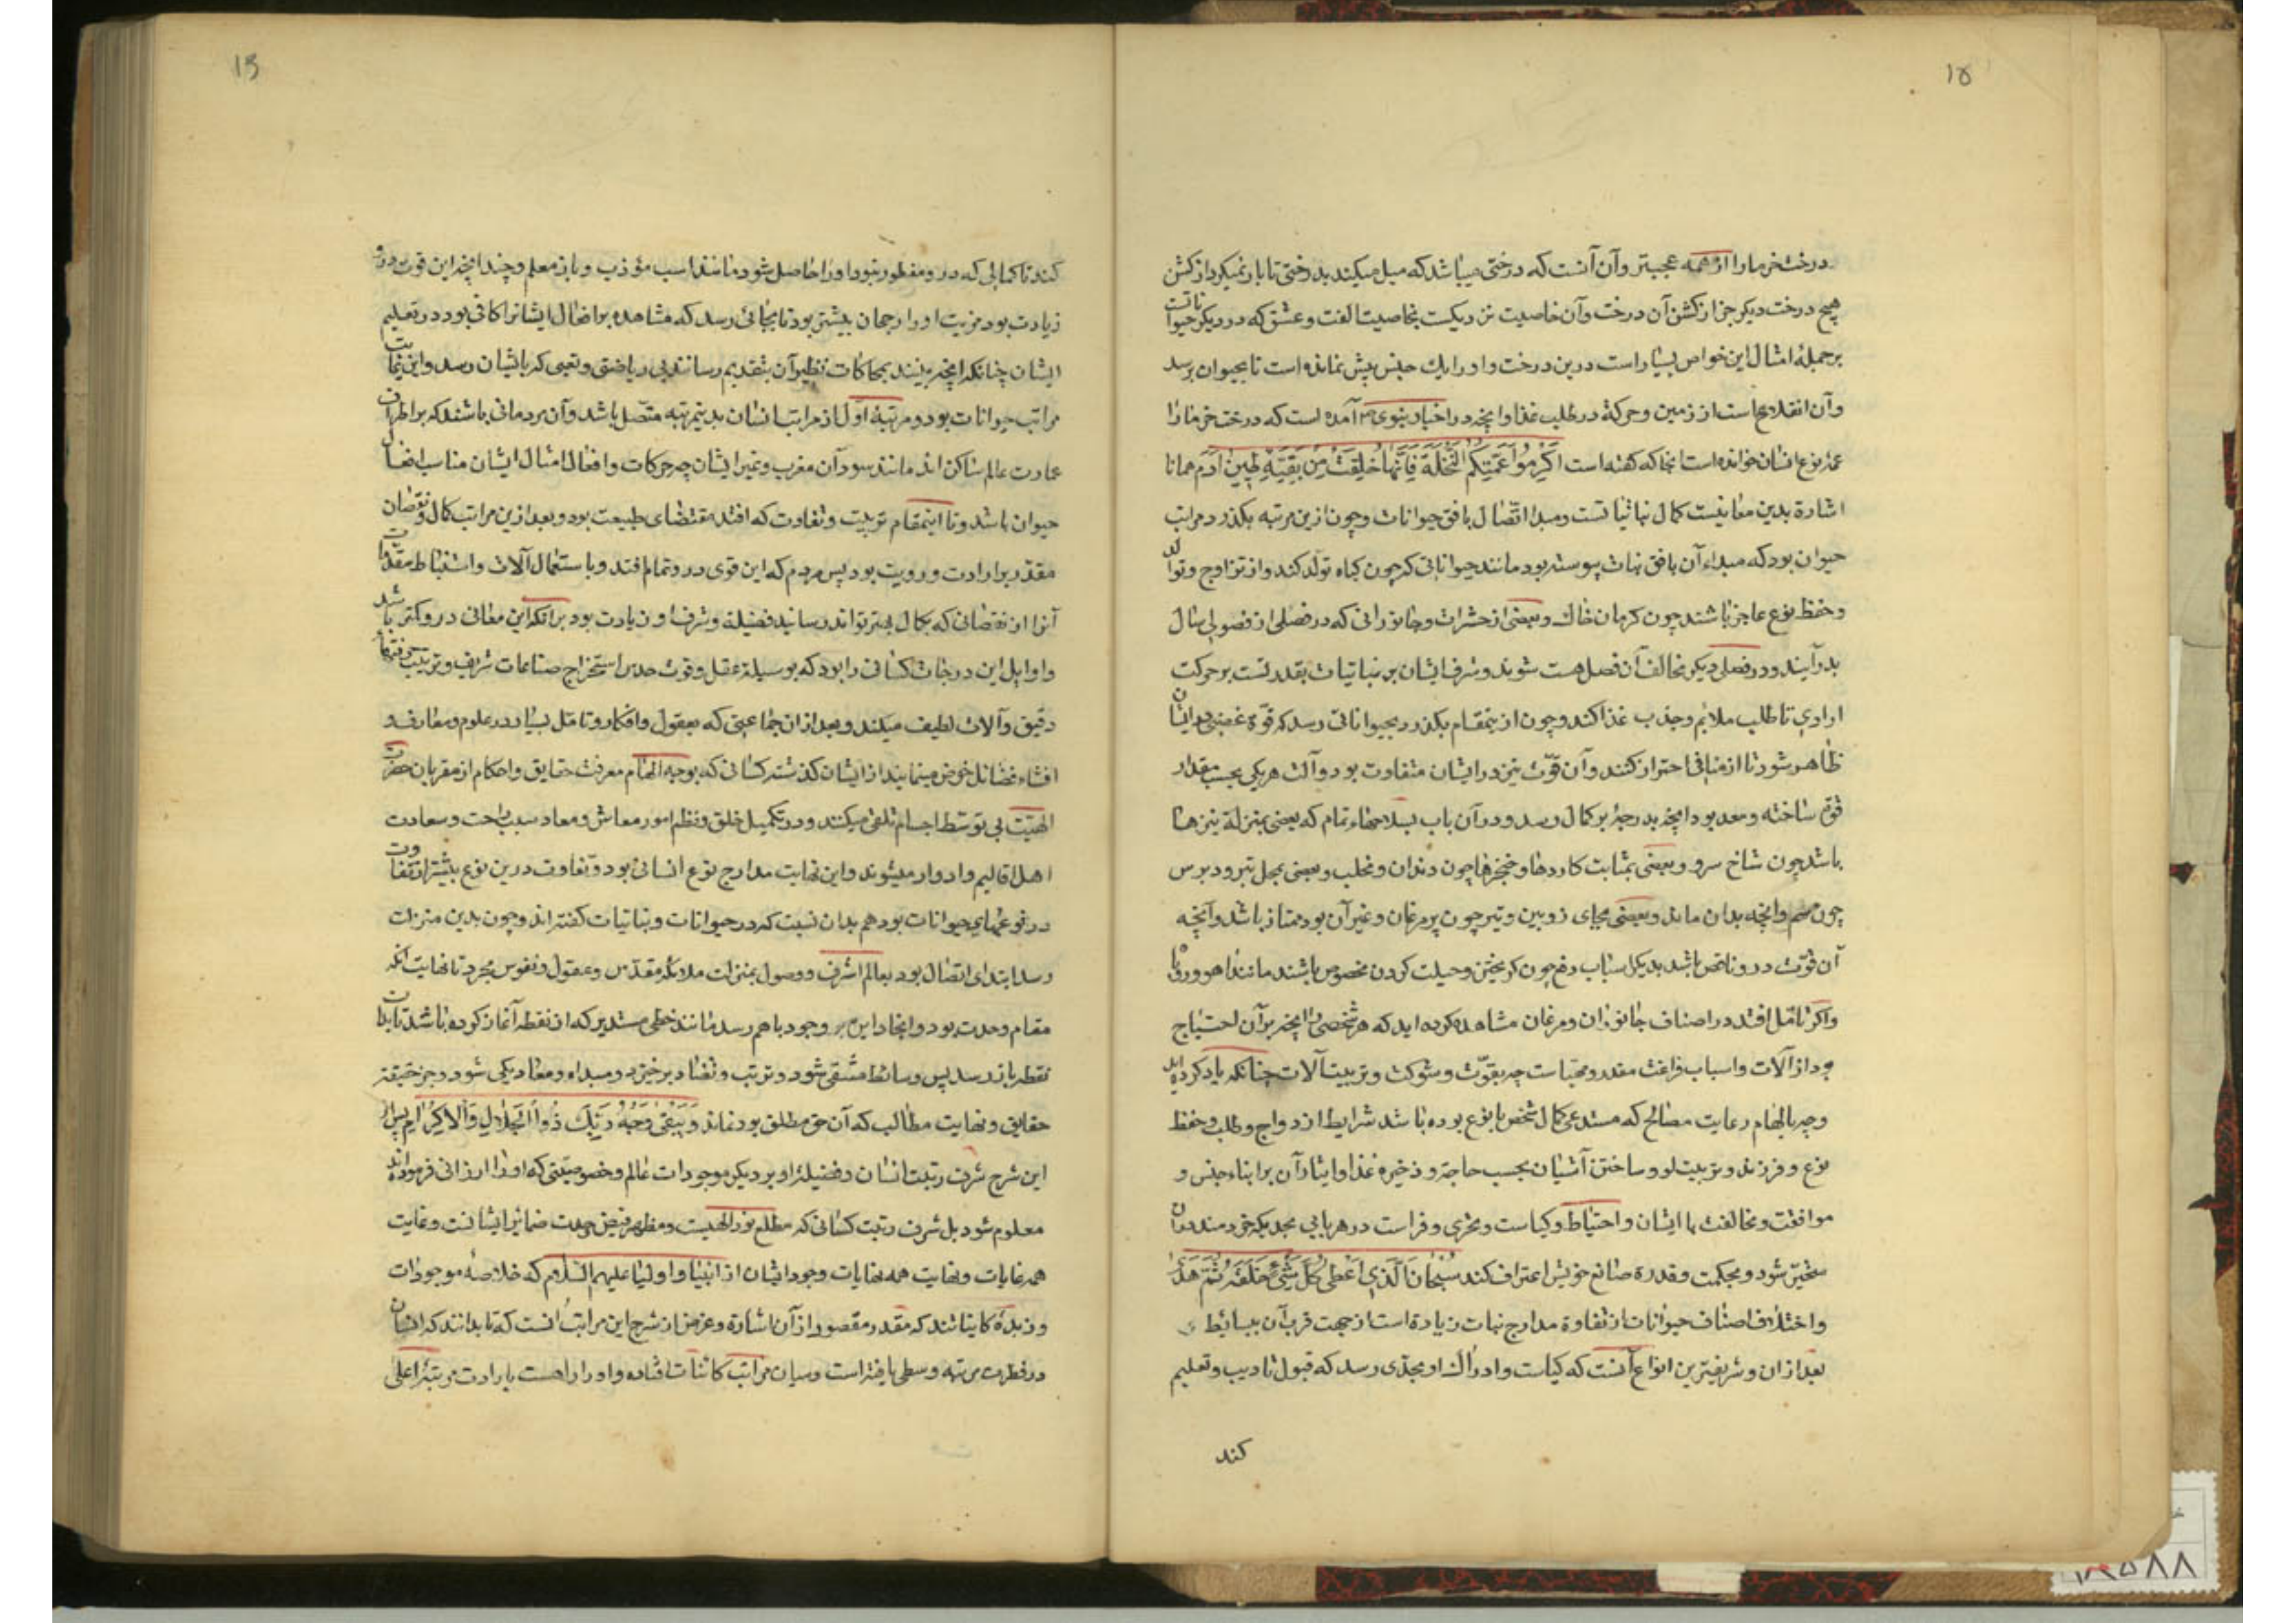 ۱۵
درخت خرما را از همه عجبتر و آن آنست که درختی میباشد که میل میکند بدرختی تا بار نمیکرد از کشن
هیچ درخت دیکر جز از کشن آن درخت و آن خاصیت نزدیکست بخاصیت الفت و عشق که در دیکر حیوانات
بر جمله امثال این خواص بسیار است درین درخت و او را یک جنس پیش نمانده است تا بحیوان برسد
و آن انقلاعست از زمین و حرکة در طلب غذا و انچه در اخبار نبوی ص آمده است که درخت خرما را
عمۀ نوع انسان خوانده است انجا که کفته است اکرموا عمتکم النخلة فانها خلقت من بقیة طین آدم همانا
اشارة بدین معانیست کمال نباتیاتست ومبدا اتصال بافق حیوانات وچون ازین مرتبه بکذرد مراتب
حیوان بود که مبداء آن بافق نبات پیوسته بود مانند حیواناتی که چون کیاه تولد کند و از تزاوج و توالد
وحفظ نوع عاجز باشند چون کرمان خاک و بعضی از حشرات و جانورانی که در فصلی از فصول سال
بدر آیند و در فصلی دیکر مخالف آن فصل هست شوند و شرف ایشان بر نباتیات بقدر تست بر حرکت
ارادی تا طلب ملایم و جذب غذا کند و چون ازینمقام بکذرد بحیواناتی رسد که قوّة غضبی در ایشان
ظاهر شود تا از منافی احتراز کنند و آن قوّت نیز در ایشان متفاوت بود و آلت هر یکی بحسب مقدار
قوّت ساخته و معد بود انچه بدرجۀ بر کمال رسد و در آن باب بسلاحهاء تمام که بعضی بمنزلة نیزها
باشد چون شاخ سرو و بعضی بمثابت کاردها و خنجرها چون دندان و مخلب و بعضی بمحل تبر و دبوس
چون سم و انچه بدان ماند و بعضی بجای زوبین و تیر چون پر مرغان و غیر آن بود ممتاز باشد و آنچه
آن قوّت در و ناقص باشد بدیکر اسباب دفع چون کریختن و حیلت کردن مخصوص باشند مانند اهو و روباه
و اکر تامل افتد در اصناف جانوران و مرغان مشاهده کرده اید که هر شخصی را انچه بر آن احتیاج
بود از آلات و اسباب فراغت مقدر و مهیاست چه بقوّت و شوکت و تربیت آلات چنانکه یاد کرده اید
و چه بالهام رعایت مصالح که مستدعی کمال شخص یا نوع بوده باشد شرایط ازدواج و طلب و حفظ
نوع و فرزند و تربیت او و ساختن آشیان بحسب حاجة و ذخیره غذا و ایثار آن بر ابناء جنس و
موافقت و مخالفت با ایشان و احتیاط و کیاست و تحری و فراست در هر بابی بحدیکه خردمند در آن
متحیر شود و بحکمت و قدرة صانع خویش اعتراف کند سبحان الذی اعطی کل شیء خلقه ثم هدی
و اختلاف اصناف حیوانات از تفاوة مدارج نبات زیادة است از جهت قرب آن ببسائط و
بعد از ان و شریفترین انواع آنست که کیاست و ادراک او بحدی رسد که قبول تادیب و تعلیم
کند
کند تا کمالی که در و مفطور نبود او را حاصل شود مانند اسب مؤدب و باز معلم و چندانچه این قوت در و
زیادت بود مزیت او را رجحان بیشتر بود تا بجائی رسد که مشاهده بر افعال ایشانرا کافی بود در تعلیم
ایشان چنانکه انچه بینند بمحاکات نظیر آن بتقدیم رسانند بی ریاضتی و تعبی که بایشان رسد و این نهایت
مراتب حیوانات بود و مرتبۀ اوّل از مراتب انسان بدینمرتبه متصل باشد و آن مردمانی باشند که بر اطراف
عمارت عالم ساکن اند مانند سودان مغرب و غیر ایشان چه حرکات و افعال امثال ایشان مناسب افعال
حیوان باشد و تا اینمقام تربیت و تفاوت که افتد مقتضای طبیعت بود و بعد ازین مراتب کمال و نقصان
مقدر بر ارادت و رویت بود پس مردم که این قوی در و تمام افتد و باستعمال آلات و استنباط مقدمات
آنرا از نقصانی که بکمال بهتر تواند رسانید فضیلة و شرف او زیادت بود برانکه این معانی در و کمتر باشد
و اوایل این درجات کسانی را بود که بوسیلة عقل و قوت حدس استخراج صناعات شریف و ترتیب حرفتهاء
دقیق و آلات لطیف میکند و بعد از ان جماعتی که بعقول و افکار و تامل بسیار در علوم و معارف و
افشاء فضائل خوض مینمایند از ایشان کذشته کسانی که بوجه الهام معرفت حقایق و احکام از مقربان حضرت
الهیّت بی توسط اجسام تلقی میکنند و در تکمیل خلق و نظم امور معاش و معاد سبب راحت و سعادت
اهل اقالیم و ادوار میشوند و این نهایت مدارج نوع انسانی بود و تفاوت درین نوع بیشتر از تفاوت
در نوعهای حیوانات بود هم بدان نسبت که در حیوانات و نباتیات کفته اند و چون بدین منزلت
رسد ابتدای اتصال بود بعالم اشرف و وصول بمنزلت ملائکه مقدس و عقول و نفوس مجرد تا نهایت انکه
مقام وحدت بود و انجا دایره وجود باهم رسد مانند خطی مستدیر که از نقطه آغاز کرده باشد تا بدان
نقطه باز رسد پس وسائط منتفی شود و ترتب و تضاد برخیزد و مبداء و معاد یکی شود و جز حقیقة
حقایق و نهایت مطالب که آن حق مطلق بود نماند وَیَبْقی وَجْهُ رَبِّكَ ذُو الْجَلالِ وَالْاِکْرامِ پس از
این شرح شرف رتبت انسان و فضیلة او بر دیکر موجودات عالم و خصوصیتی که او را ارزانی فرموده اند
معلوم شود بل شرف رتبت کسانی که مطلع نور الهیت و مظهر فیض وحدت ضمائر ایشانست و غایت
همه غایات و نهایت همه نهایات وجود ایشان از انبیا و اولیا علیهم السلام که خلاصۀ موجودات
و زبدۀ کایناتند که مقدر مقصود از آن اشارة و غرض از شرح این مراتب انست که تا بدانند که انسان
در فطرت مرتبه وسطی یافته است و میان مراتب کائنات فتاده و او را راهست بارادت مرتبۀ اعلی